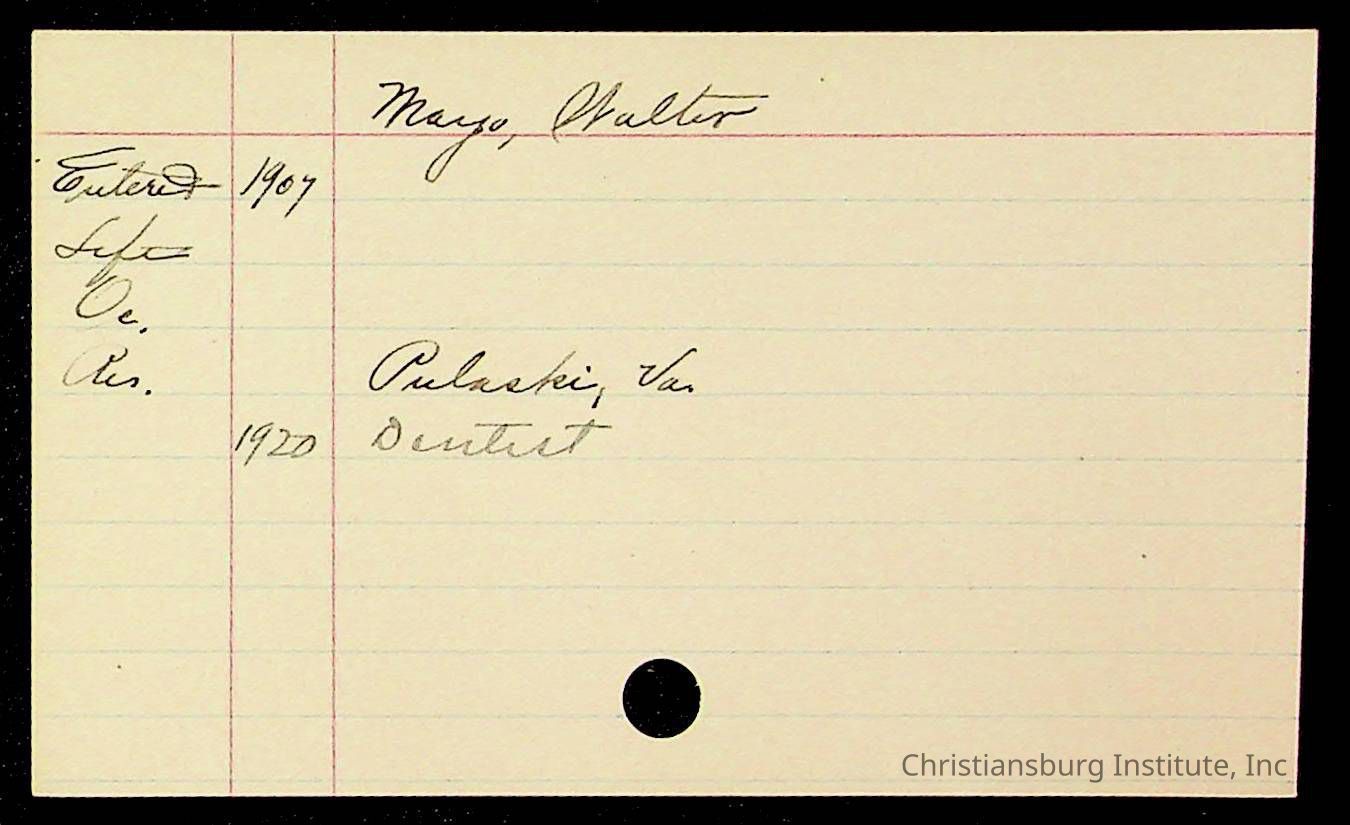 Mayo, Walter
Entered 1907
Left
Oc.
Res. Pulaski, Va.
1920 Dentist
Christiansburg Institute, Inc